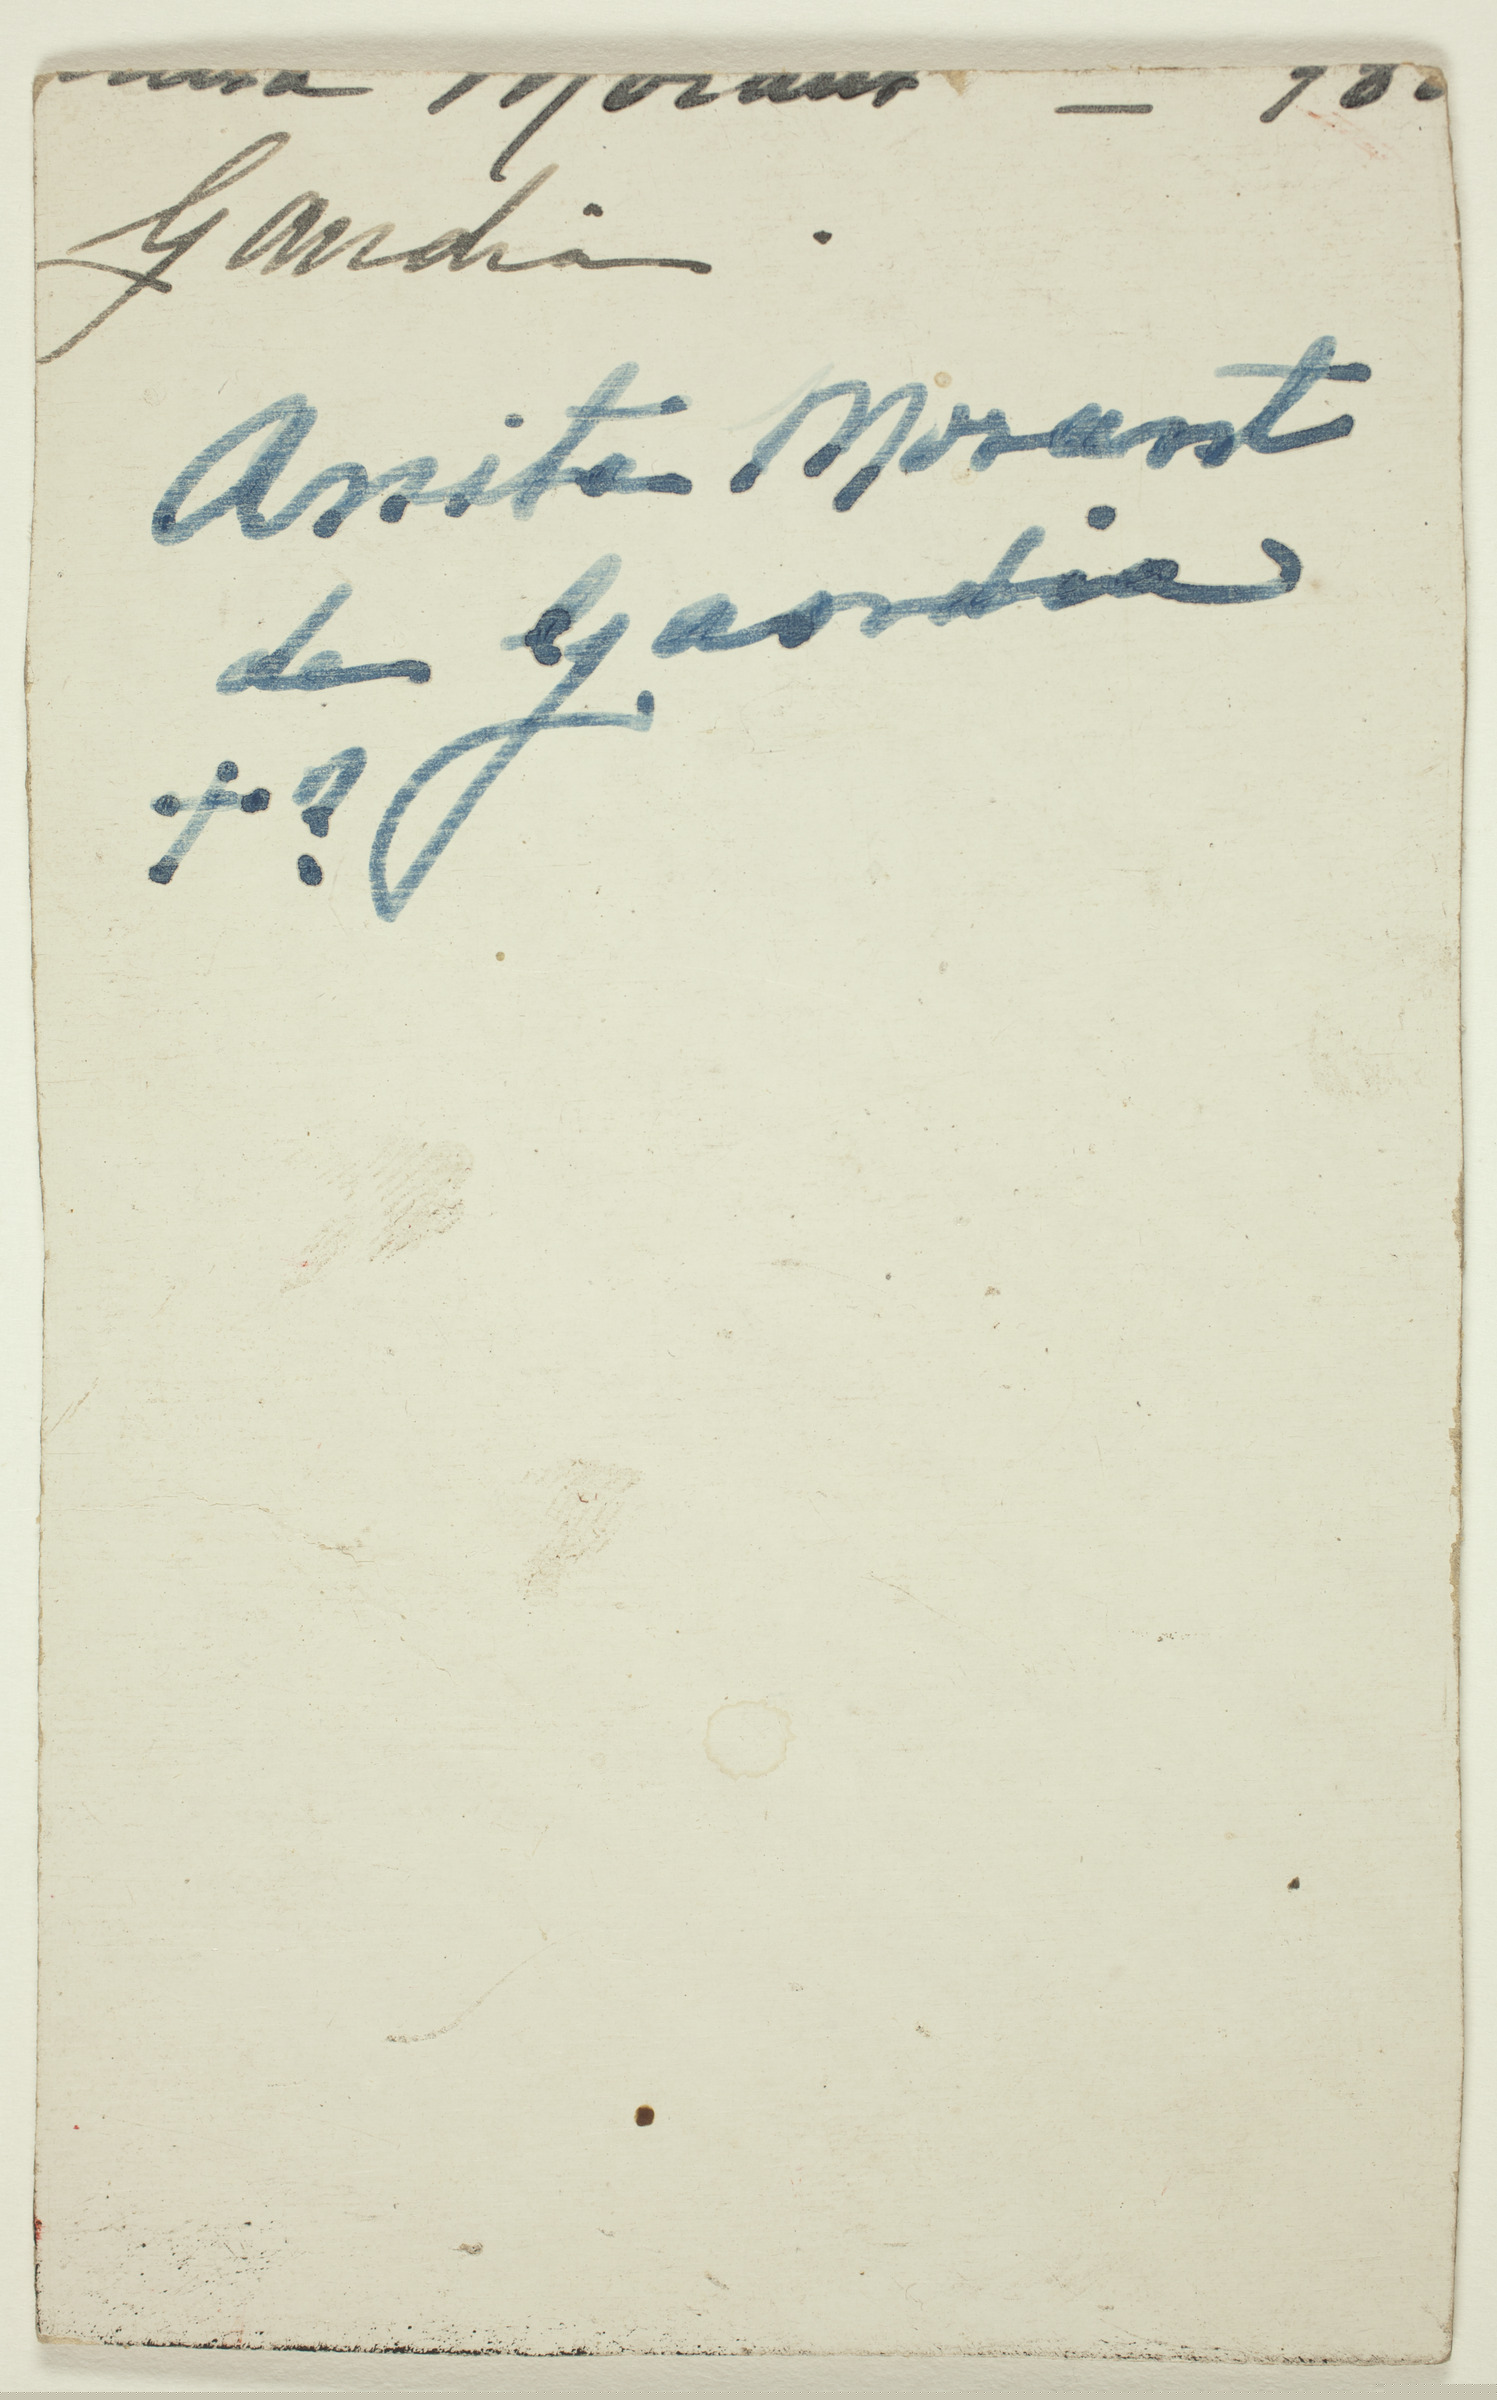 Morant –
Gandia
Anita Morant
de Gandia
+?